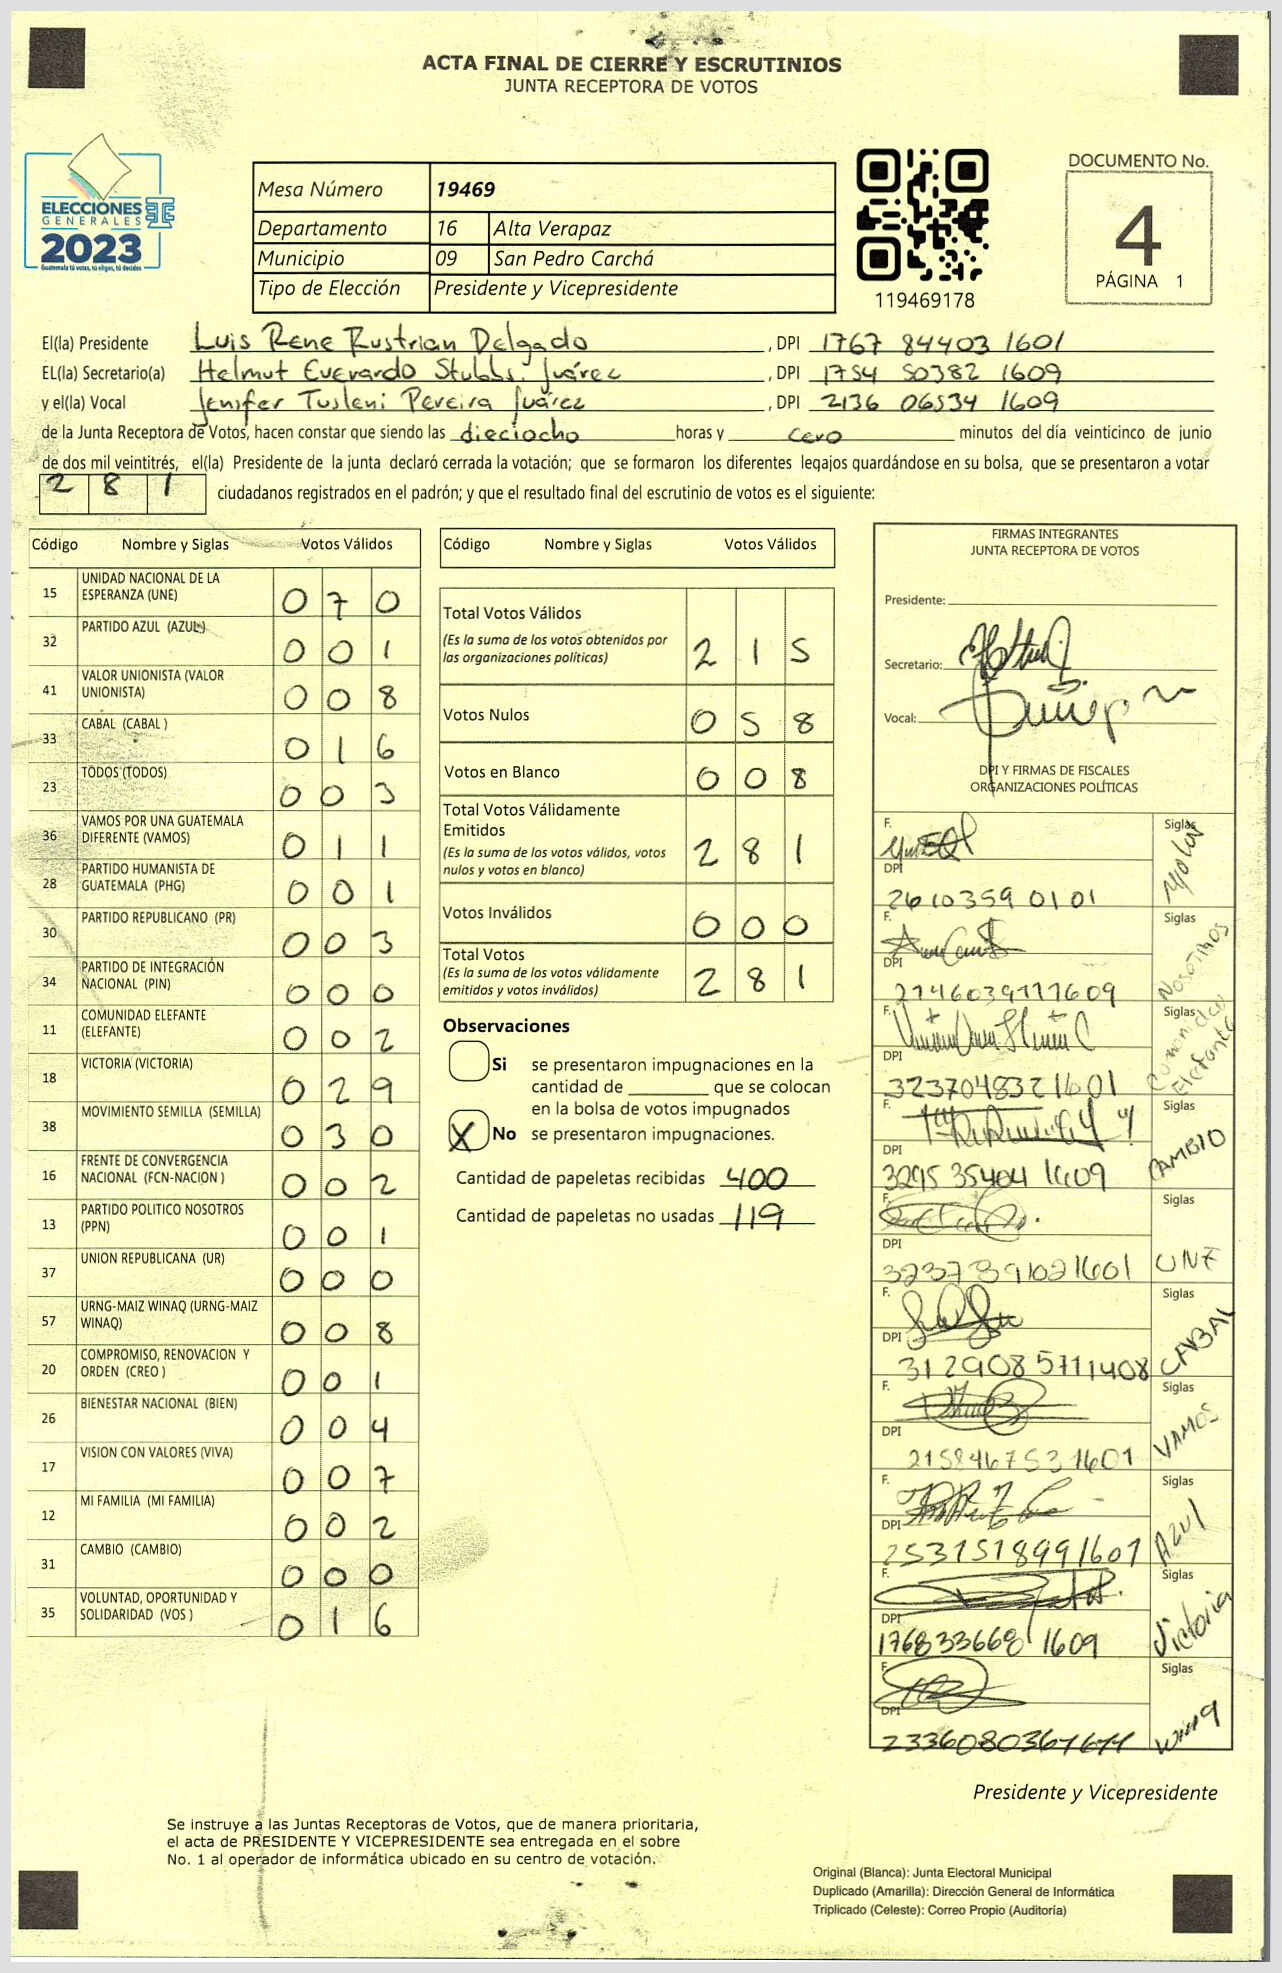 ACTA FINAL DE CIERRE Y ESCRUTINIOS
JUNTA RECEPTORA DE VOTOS
ELECCIONES
GENERALES
2023
Guatemala tú votas, tú eliges, tú decides
Mesa Número 19469
Departamento 16 Alta Verapaz
Municipio 09 San Pedro Carchá
Tipo de Elección Presidente y Vicepresidente
119469178
DOCUMENTO No.
4
PÁGINA 1
El(la) Presidente Luis Rene Rustrian Delgado, DPI 1767 84403 1601
EL(la) Secretario(a) Helmut Everardo Stubbs Juárez, DPI 1754 50382 1609
y el(la) Vocal Jenifer Tusleni Pereira Juárez, DPI 2136 06534 1609
de la Junta Receptora de Votos, hacen constar que siendo las dieciocho horas y cero minutos del día veinticinco de junio
de dos mil veintitrés, el(la) Presidente de la junta declaró cerrada la votación; que se formaron los diferentes legajos quardándose en su bolsa, que se presentaron a votar
281 ciudadanos registrados en el padrón; y que el resultado final del escrutinio de votos es el siguiente:
Código Nombre y Siglas Votos Válidos
15 UNIDAD NACIONAL DE LA ESPERANZA (UNE) 070
32 PARTIDO AZUL (AZUL) 001
41 VALOR UNIONISTA (VALOR UNIONISTA) 008
33 CABAL (CABAL ) 016
23 TODOS (TODOS) 003
36 VAMOS POR UNA GUATEMALA DIFERENTE (VAMOS) 011
28 PARTIDO HUMANISTA DE GUATEMALA (PHG) 001
30 PARTIDO REPUBLICANO (PR) 003
34 PARTIDO DE INTEGRACIÓN NACIONAL (PIN) 000
11 COMUNIDAD ELEFANTE (ELEFANTE) 002
18 VICTORIA (VICTORIA) 029
38 MOVIMIENTO SEMILLA (SEMILLA) 030
16 FRENTE DE CONVERGENCIA NACIONAL (FCN-NACION ) 002
13 PARTIDO POLITICO NOSOTROS (PPN) 001
37 UNION REPUBLICANA (UR) 000
57 URNG-MAIZ WINAQ (URNG-MAIZ WINAQ) 008
20 COMPROMISO, RENOVACION Y ORDEN (CREO ) 001
26 BIENESTAR NACIONAL (BIEN) 004
17 VISION CON VALORES (VIVA) 007
12 MI FAMILIA (MI FAMILIA) 002
31 CAMBIO (CAMBIO) 000
35 VOLUNTAD, OPORTUNIDAD Y SOLIDARIDAD (VOS ) 016
Código Nombre y Siglas Votos Válidos
Total Votos Válidos 215
(Es la suma de los votos obtenidos por
las organizaciones políticas)
Votos Nulos 058
Votos en Blanco 008
Total Votos Válidamente
Emitidos 281
(Es la suma de los votos válidos, votos
nulos y votos en blanco)
Votos Inválidos 000
Total Votos 281
(Es la suma de los votos válidamente
emitidos y votos inválidos)
Observaciones
Si se presentaron impugnaciones en la
cantidad de que se colocan
en la bolsa de votos impugnados
X No se presentaron impugnaciones.
Cantidad de papeletas recibidas 400
Cantidad de papeletas no usadas 119
FIRMAS INTEGRANTES
JUNTA RECEPTORA DE VOTOS
Presidente:
Secretario:
Vocal:
DPI Y FIRMAS DE FISCALES
ORGANIZACIONES POLÍTICAS
F. Siglas
DPI
2610359 0101
F. Siglas Nosotros
DPI
F. Siglas Comunidad Elefante
DPI
3237048321601
F. Siglas CAMBIO
DPI
3295 35404 1609
F. Siglas UNE
DPI
3237391021601
F. Siglas CABAL
DPI
3129085711408
F. Siglas VAMOS
DPI
2158467531601
F. Siglas AZUL
DPI
2531518991601
F. Siglas Victoria
DPI
176833668 1609
F. Siglas Winq
DPI
Presidente y Vicepresidente
Se instruye a las Juntas Receptoras de Votos, que de manera prioritaria,
el acta de PRESIDENTE Y VICEPRESIDENTE sea entregada en el sobre
No. 1 al operador de informática ubicado en su centro de votación.
Original (Blanca): Junta Electoral Municipal
Duplicado (Amarilla): Dirección General de Informática
Triplicado (Celeste): Correo Propio (Auditoría)